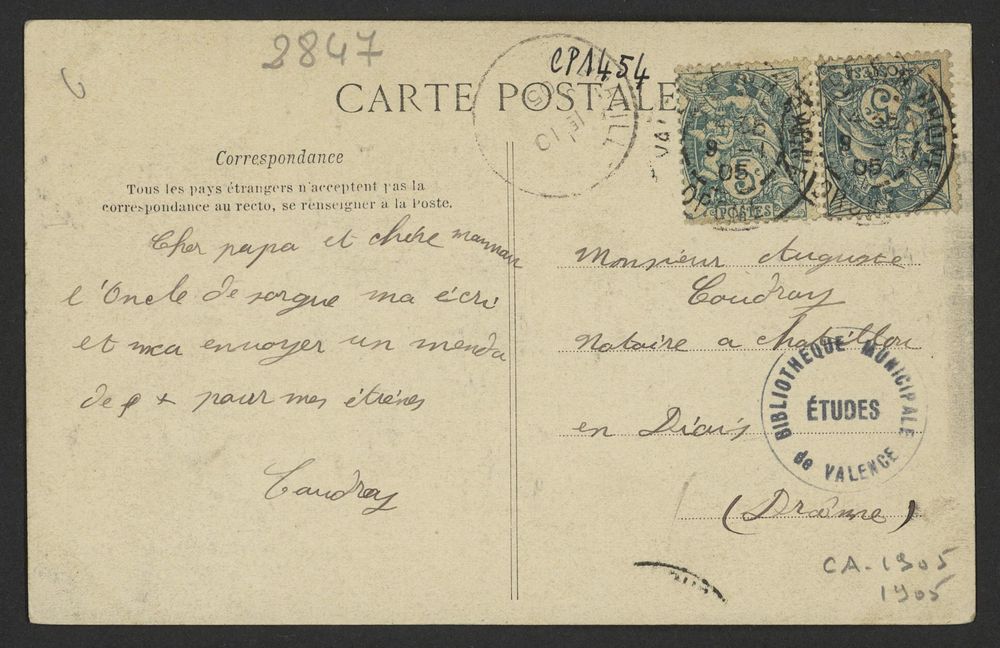 2847
CP1454
CARTE POSTALE
Correspondance
Tous les pays étrangers n'acceptent pas la
correspondance au recto, se renseigner à la Poste.
Cher papa et chère maman
l'Oncle de sorgue ma écri
et mea envoyer un menda
de 5 + pour mes étrénes
Coudray
Monsieur Auguste
Coudray
Notaire a Chatillon
en Diois
(Drôme)
BIBLIOTHEQUE MUNICIPALE
ÉTUDES
de VALENCE
POSTES
POSTES
05
05
CA-1905
1905